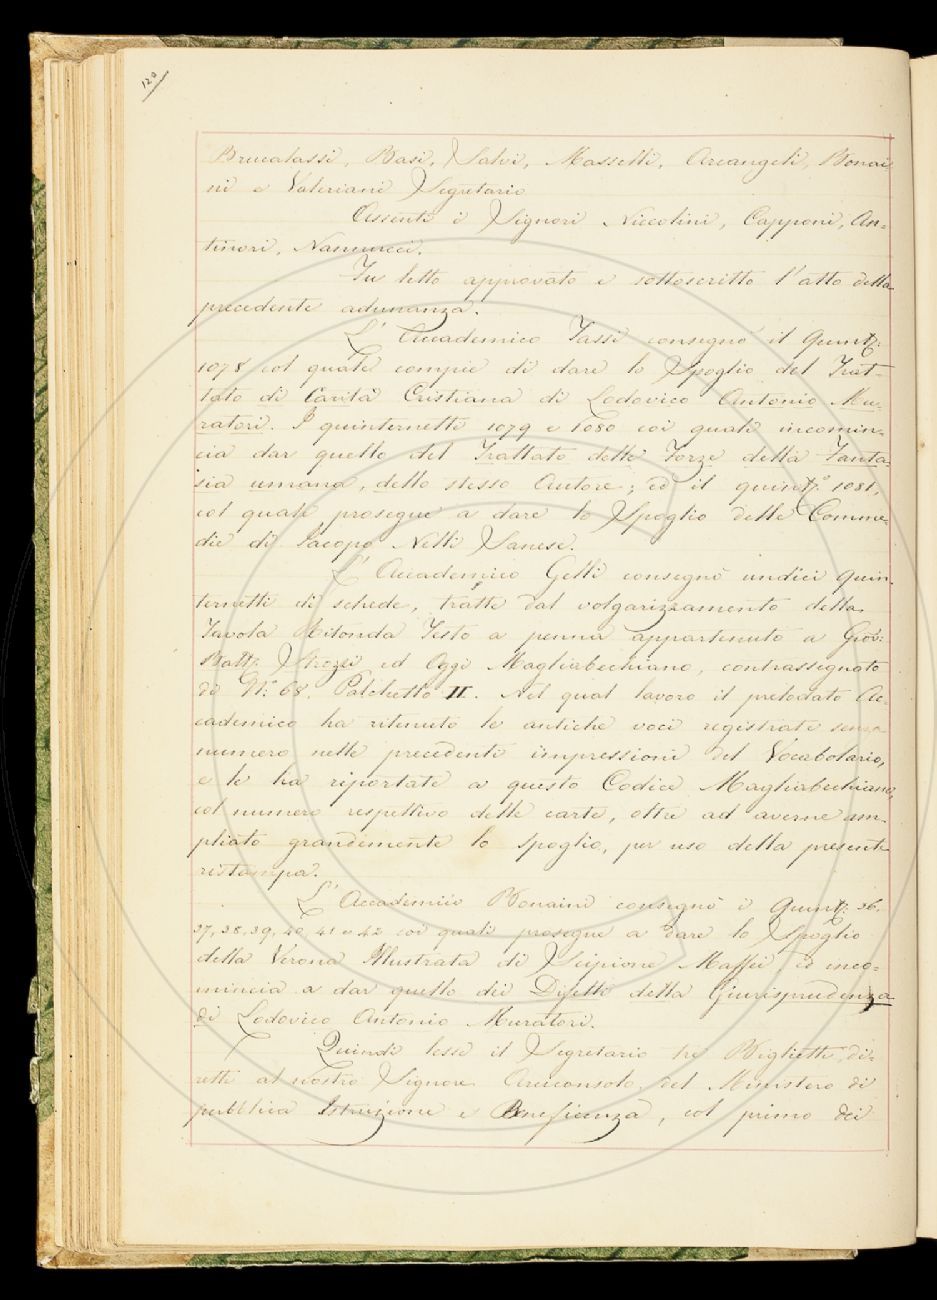 120
Brucalassi, Basi, Salvi, Masselli, Arcangeli, Bonai-
ni e Valeriani Segretario
Assenti i Signori Niccolini, Capponi, An-
tinori, Nannucci.
Fu letto approvato e sottoscritto l'atto della
precedente adunanza.
L'Accademico Tassi consegnò il Quint:
1078 col quale compie di dare lo Spoglio del Trat-
tato di Carità Cristiana di Lodovico Antonio Mu-
ratori. I quinternetti 1079 e 1080 coi quali incomin-
cia dar quello del Trattato delle Forze della Fanta-
sia umana, dello stesso Autore; ed il quint:° 1081,
col quale prosegue a dare lo Spoglio delle Comme-
die di Iacopo Nelli Sanese.
L'Accademico Gelli consegnò undici Quin-
ternetti di schede, tratte dal volgarizzamento della
Tavola Ritonda Testo a penna appartenuto a Giov:
Batt: Strozzi ed Oggi Magliabechiano, contrassegnato
di N.° 68. Palchetto II. Nel qual lavoro il prelodato Ac-
cademico ha ritenuto le antiche voci registrate senza
numero nelle precedenti impressioni del Vocabolario,
e le ha riportate a questo Codice Magliabechiano,
col numero respettivo delle carte, oltre ad averne am-
pliato grandemente lo spoglio, per uso della presente
ristampa.
L'Accademico Bonaini consegnò i Quint: 36.
37, 38, 39, 40, 41 e 42 coi quali prosegue a dare lo Spoglio
della Verona Illustrata di Scipione Maffei, ed inco-
mincia a dar quello dei Difetti della Giurisprudenza
di Lodovico Antonio Muratori.
Quindi lesse il Segretario tre Biglietti di-
retti al nostro Signore Arciconsolo, del Ministero di
pubblica Istruzione e Beneficenza, col primo dei